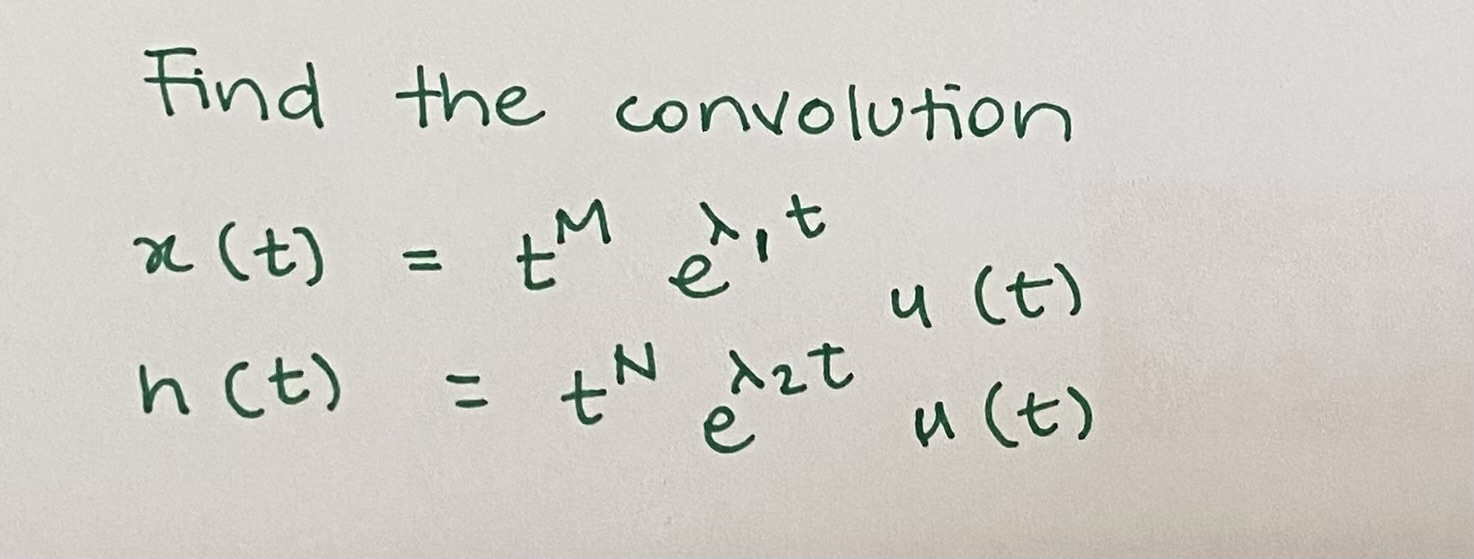 Find the convolution
x(t) = t^M e^λ₁t u(t)
h(t) = t^N e^λ₂t u(t)